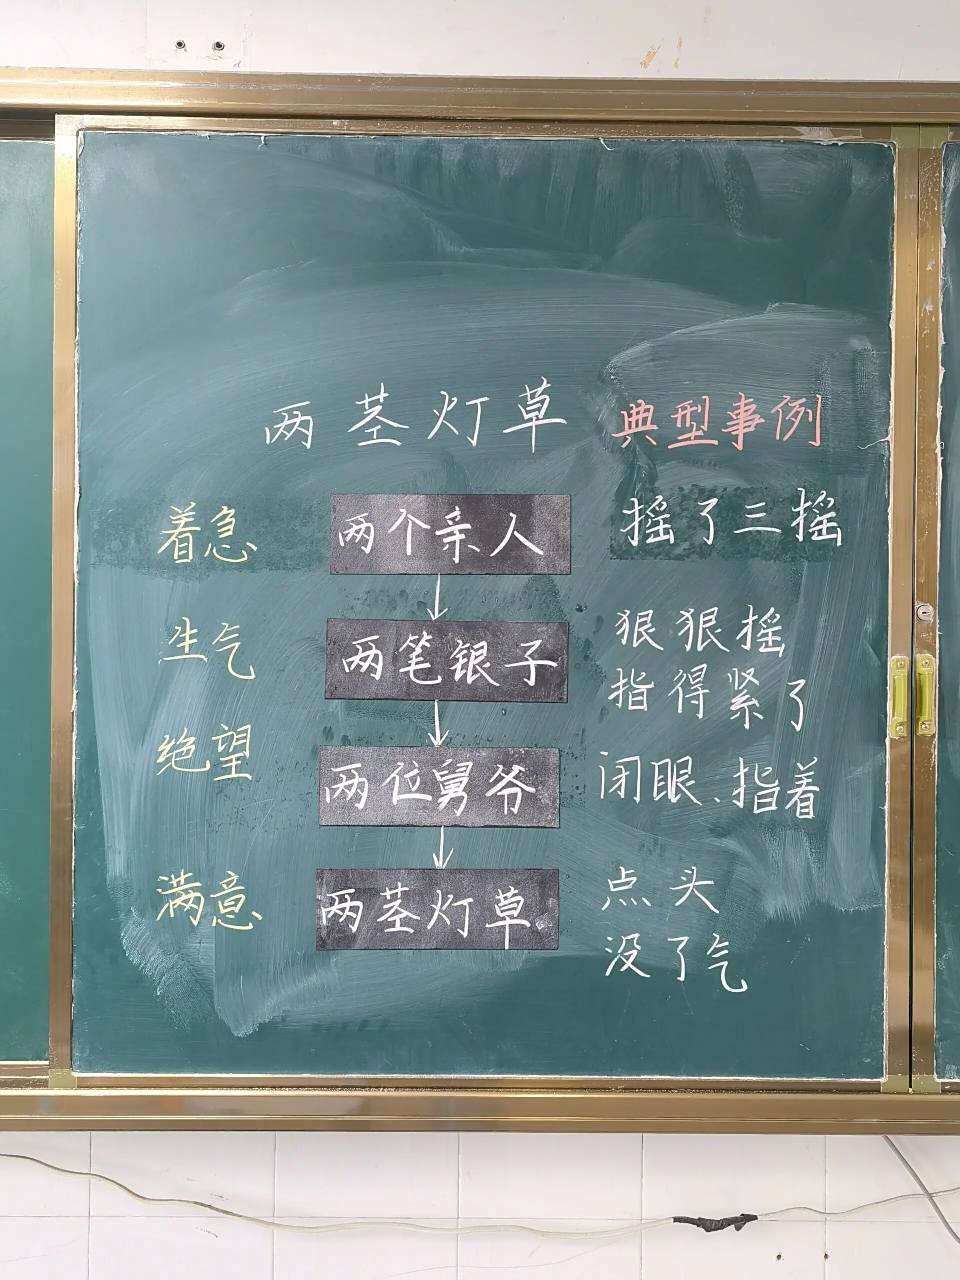 两茎灯草 典型事例
着急 两个亲人 摇了三摇
生气 两笔银子 狠狠摇
指得紧了
绝望 两位舅爷 闭眼、指着
满意 两茎灯草 点头
没了气